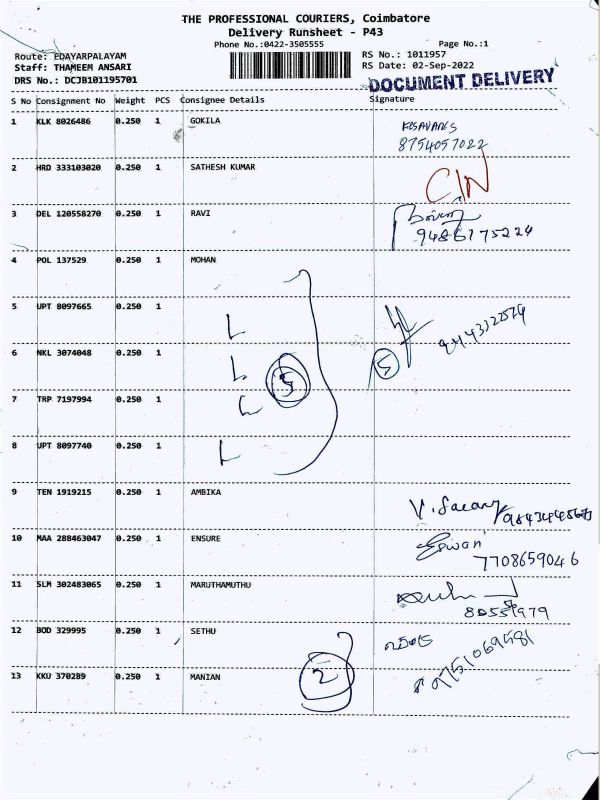 THE PROFESSIONAL COURIERS, Coimbatore
Delivery Runsheet - P43
Phone No.:0422-3505555 Page No.:1
Route: EDAYARPALAYAM RS No.: 1011957
Staff: THAMEEM ANSARI RS Date: 02-Sep-2022
DRS No.: DCJB101195701
DOCUMENT DELIVERY
S No Consignment No Weight PCS Consignee Details Signature
1 KLK 8026486 0.250 1 GOKILA
8754057022
2 HRD 333103020 0.250 1 SATHESH KUMAR
3 DEL 120558270 0.250 1 RAVI
9486175224
4 POL 137529 0.250 1 MOHAN
5 UPT 8097665 0.250 1
6 NKL 3074048 0.250 1
5 5
7 TRP 7197994 0.250 1
8 UPT 8097740 0.250 1
9 TEN 1919215 0.250 1 AMBIKA
10 MAA 288463047 0.250 1 ENSURE
7708659046
11 SLM 302483065 0.250 1 MARUTHAMUTHU
12 BOD 329995 0.250 1 SETHU
13 KKU 370289 0.250 1 MANIAN
2